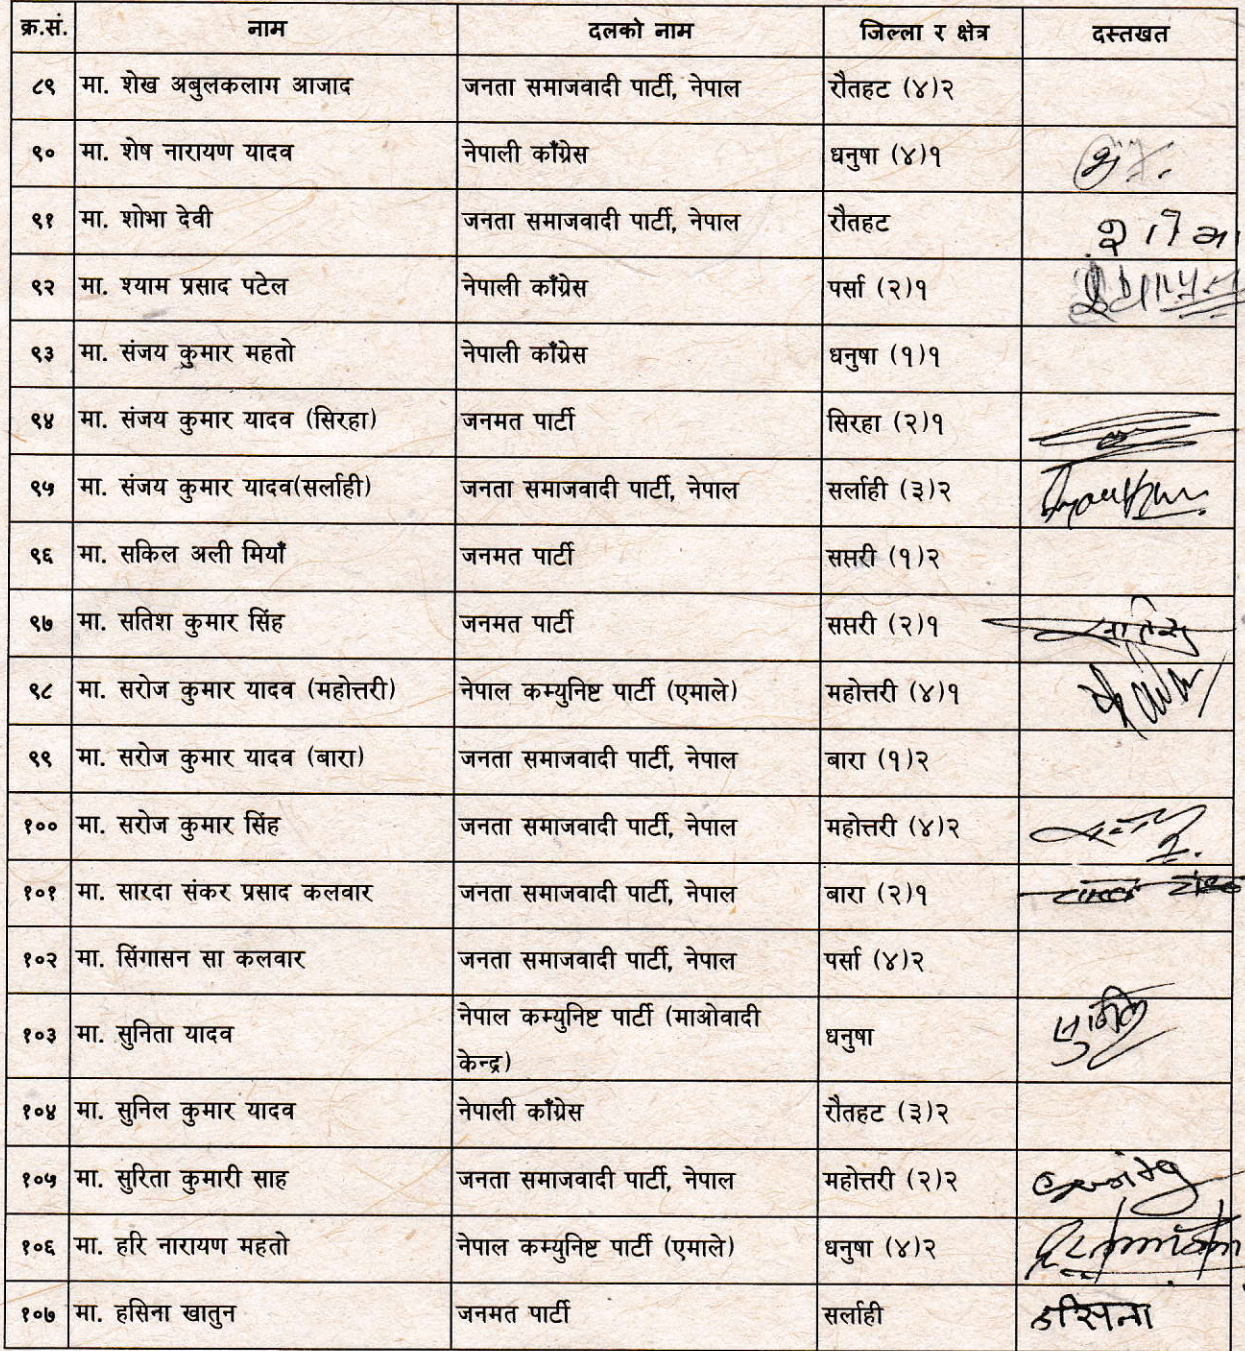 क्र.सं. नाम दलको नाम जिल्ला र क्षेत्र दस्तखत
८९ मा. शेख अबुलकलाग आजाद जनता समाजवादी पार्टी, नेपाल रौतहट (४)२
९० मा. शेष नारायण यादव नेपाली काँग्रेस धनुषा (४)१
९१ मा. शोभा देवी जनता समाजवादी पार्टी, नेपाल रौतहट
९२ मा. श्याम प्रसाद पटेल नेपाली काँग्रेस पर्सा (२)१
९३ मा. संजय कुमार महतो नेपाली काँग्रेस धनुषा (१)१
९४ मा. संजय कुमार यादव (सिरहा) जनमत पार्टी सिरहा (२)१
९५ मा. संजय कुमार यादव(सर्लाही) जनता समाजवादी पार्टी, नेपाल सर्लाही (३)२
९६ मा. सकिल अली मियाँ जनमत पार्टी सप्तरी (१)२
९७ मा. सतिश कुमार सिंह जनमत पार्टी सप्तरी (२)१
९८ मा. सरोज कुमार यादव (महोत्तरी) नेपाल कम्युनिष्ट पार्टी (एमाले) महोत्तरी (४)१
९९ मा. सरोज कुमार यादव (बारा) जनता समाजवादी पार्टी, नेपाल बारा (१)२
१०० मा. सरोज कुमार सिंह जनता समाजवादी पार्टी, नेपाल महोत्तरी (४)२
१०१ मा. सारदा संकर प्रसाद कलवार जनता समाजवादी पार्टी, नेपाल बारा (२)१
१०२ मा. सिंगासन सा कलवार जनता समाजवादी पार्टी, नेपाल पर्सा (४)२
१०३ मा. सुनिता यादव नेपाल कम्युनिष्ट पार्टी (माओवादी
केन्द्र) धनुषा
१०४ मा. सुनिल कुमार यादव नेपाली काँग्रेस रौतहट (३)२
१०५ मा. सुरिता कुमारी साह जनता समाजवादी पार्टी, नेपाल महोत्तरी (२)२
१०६ मा. हरि नारायण महतो नेपाल कम्युनिष्ट पार्टी (एमाले) धनुषा (४)२
१०७ मा. हसिना खातुन जनमत पार्टी सर्लाही हसिना